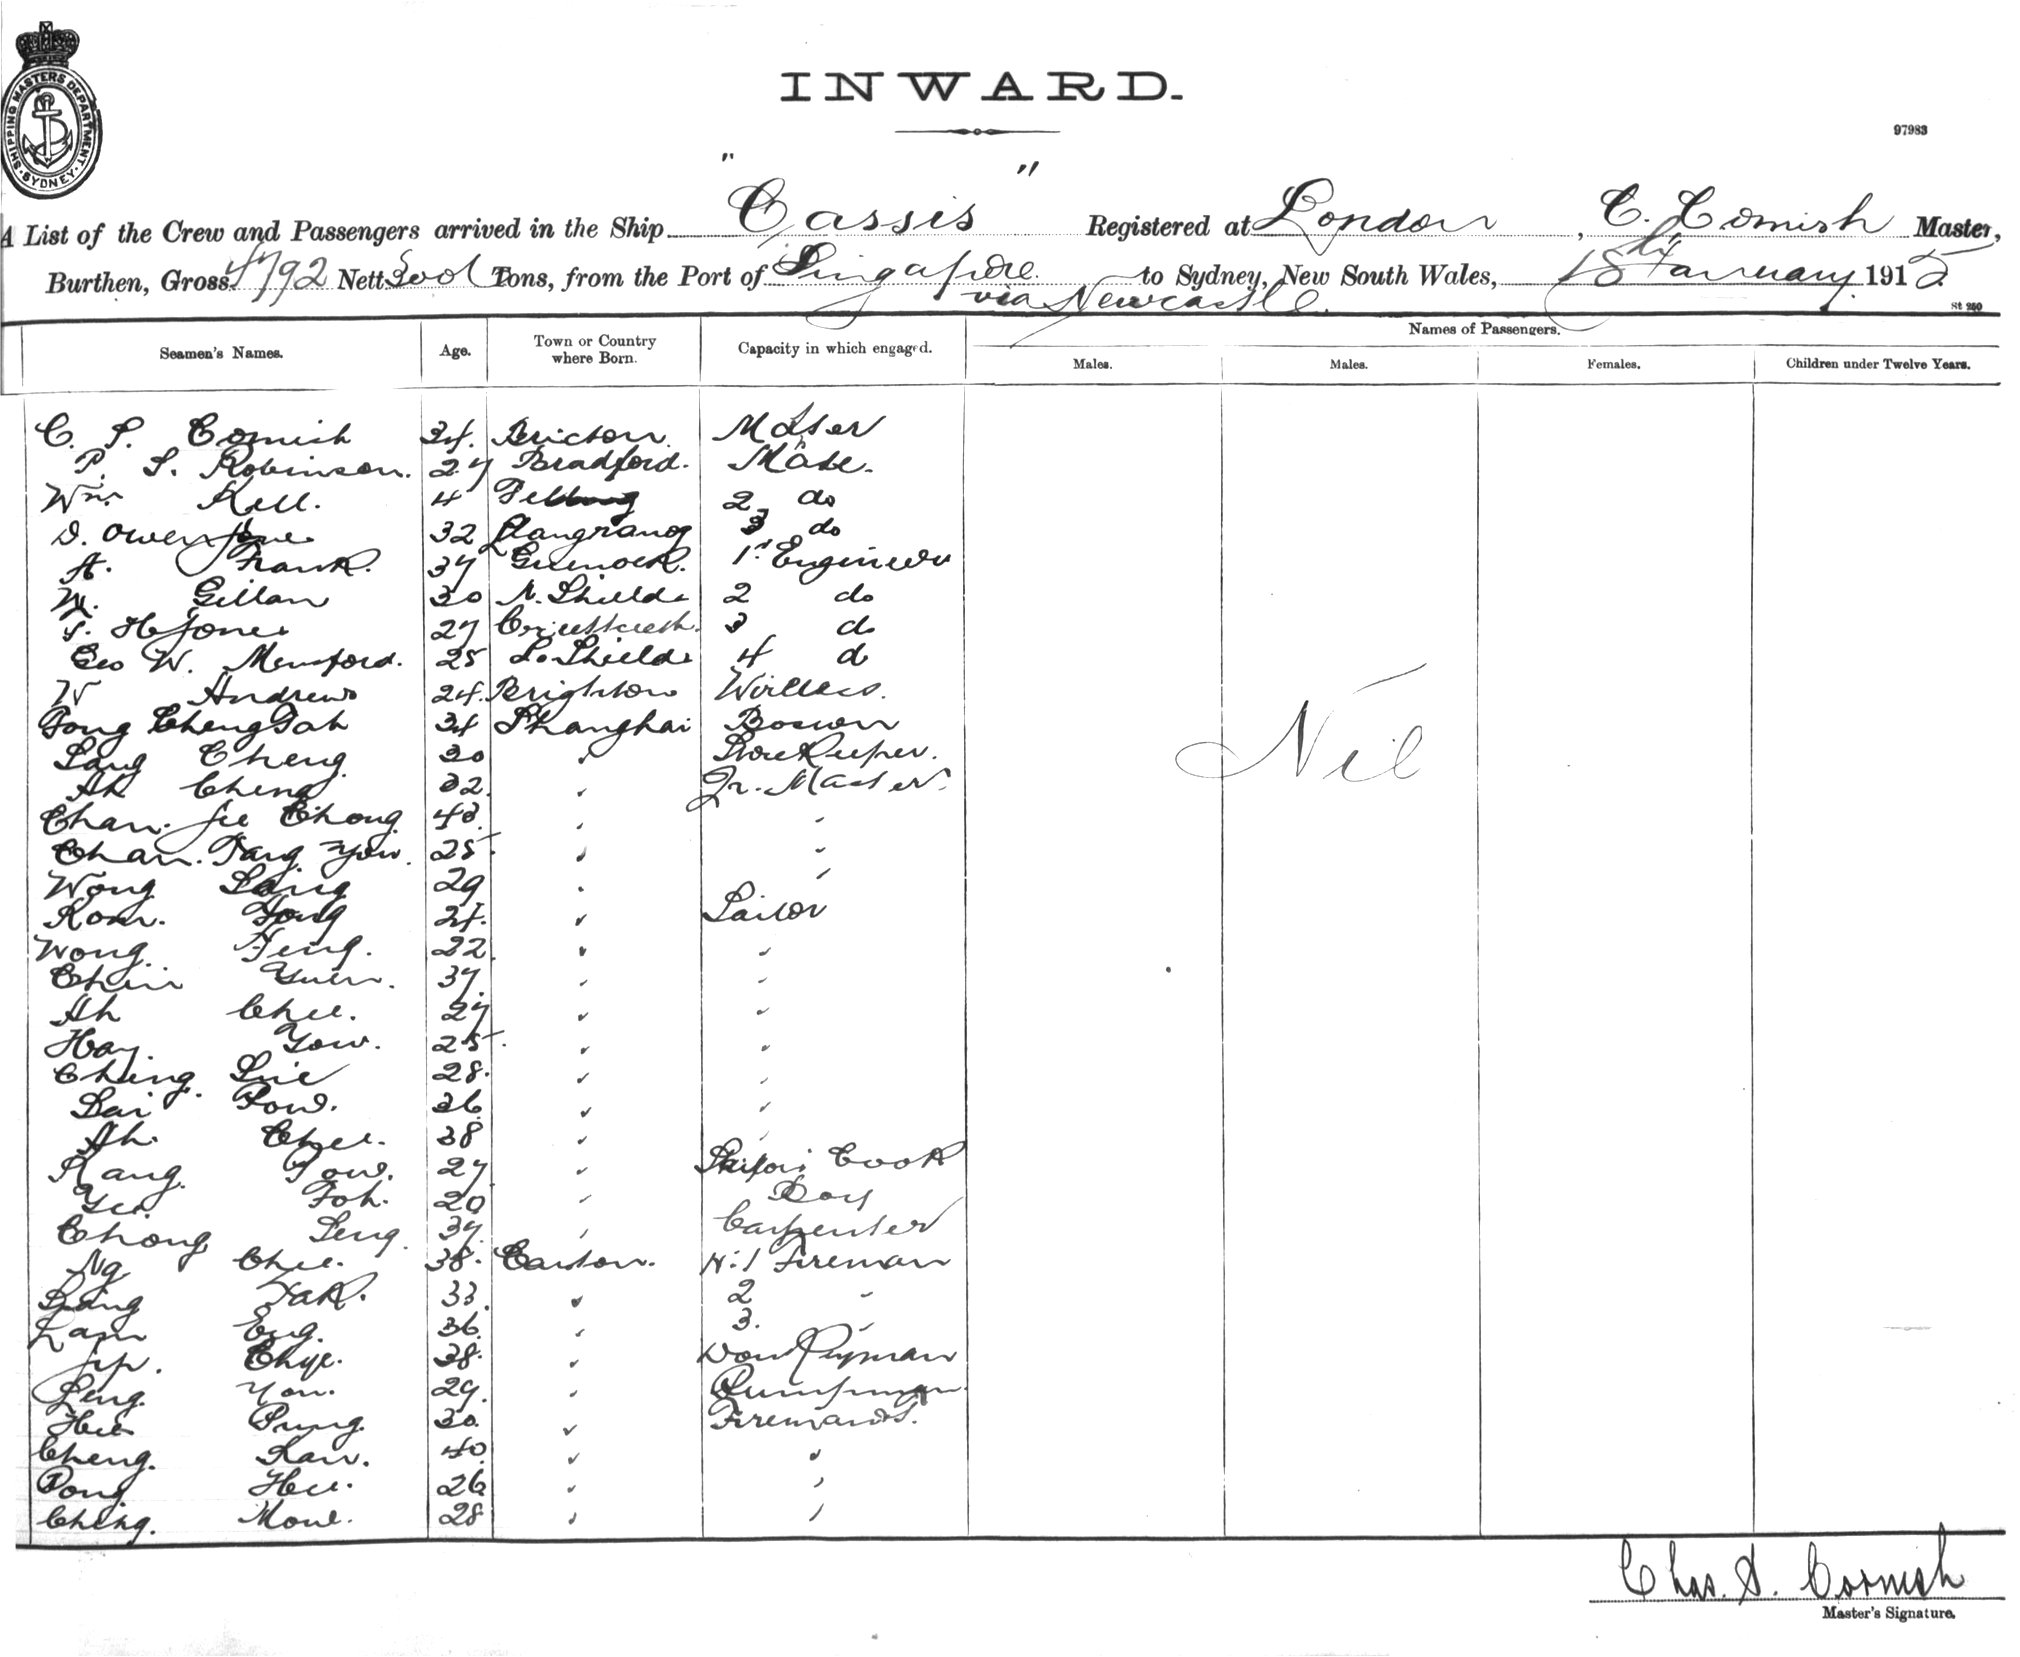 SHIPPING MASTERS DEPARTMENT · SYDNEY ·
INWARD.
97983
A List of the Crew and Passengers arrived in the Ship " Cassis " Registered at London, C. Cornish Master,
Burthen, Gross 4792 Nett Tons, from the Port of Singapore to Sydney, New South Wales, 18th January 1915
via Newcastle.
St 250
Seamen's Names. Age. Town or Country where Born. Capacity in which engaged. Names of Passengers.
Males. Males. Females. Children under Twelve Years.
C. S. Cornish 34. Master
P. S. Robinson. 27 Bradford. Mate.
Wm Kell. 4 2 do
D. Owen Jones 32 Llangranog 3 do
A. Frank. 37 Greenock. 1st Engineer
W. Gillan 30 N. Shields 2 do
T. H Jones 27 Criccieth. 3 do
Geo W. Mumford. 25 So. Shields 4 d
W Andrews 24. Brighton Wireless.
Tong Cheng Tah 34 Shanghai Boswn
Lang Cheng 30 " StoreKeeper.
Ah Cheng 32 " Qr. Master.
Chan. Jee Chong 43. " "
Chan. Tang Yow. 25. " "
Wong Laing 29 " "
Kom. Yong 24. " Sailor
Wong. Teng. 22 " "
Chin Yuen. 37. " "
Ah Chee. 27 " "
Hay. Yow. 25. " "
Ching. Sue 28. " "
Lai Pow. 36. " "
Ah. Chee. 38 " "
Kang. Pow. 27. " Ship's Cook
Yee Foh. 20 " Boy
Chong Seng. 37. " Carpenter
Ng Chee. 38. Canton. No 1 Fireman
Liang Tak. 33. " 2 "
Lam Eng. 36. " 3. "
Jip. Chye. 38. " Donkeyman
Leng. You. 29. " Pumpman.
Hee Pung. 30. " Firemans.
Cheng. Kan. 40. " "
Pong Hee. 26 " "
Ching. Mowe. 28 " "
Nil
Chas. S. Cornish
Master's Signature.